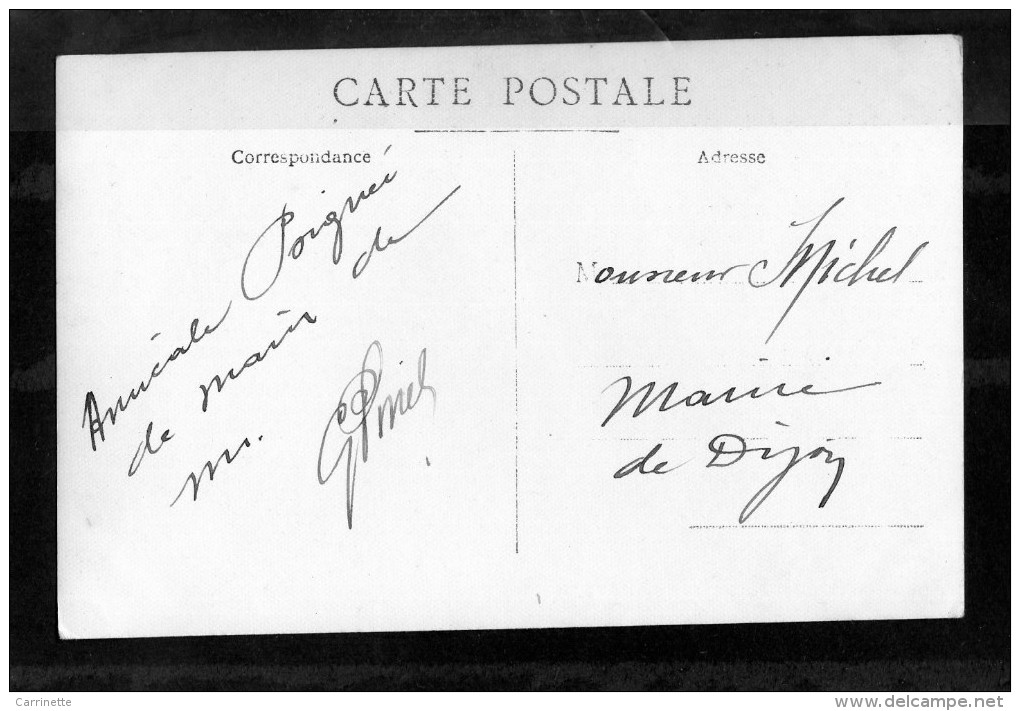 CARTE POSTALE
Correspondance
Adresse
Amicale Poignée
de main de
Mr.
Monsieur Michel
Mairie
de Dijon
Carrinette
www.delcampe.net